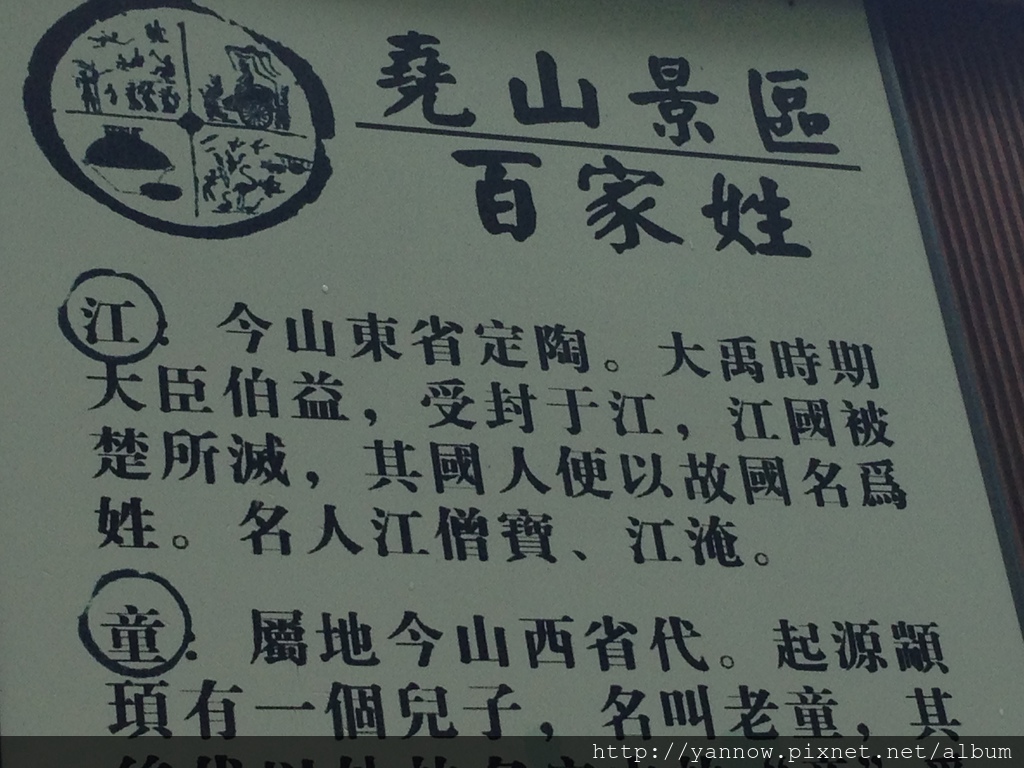 堯山景區
百家姓
江：今山東省定陶。大禹時期
大臣伯益，受封于江，江國被
楚所滅，其國人便以故國名爲
姓。名人江僧寶、江淹。
童：屬地今山西省代。起源顓
頊有一個兒子，名叫老童，其
http://yannow.pixnet.net/album